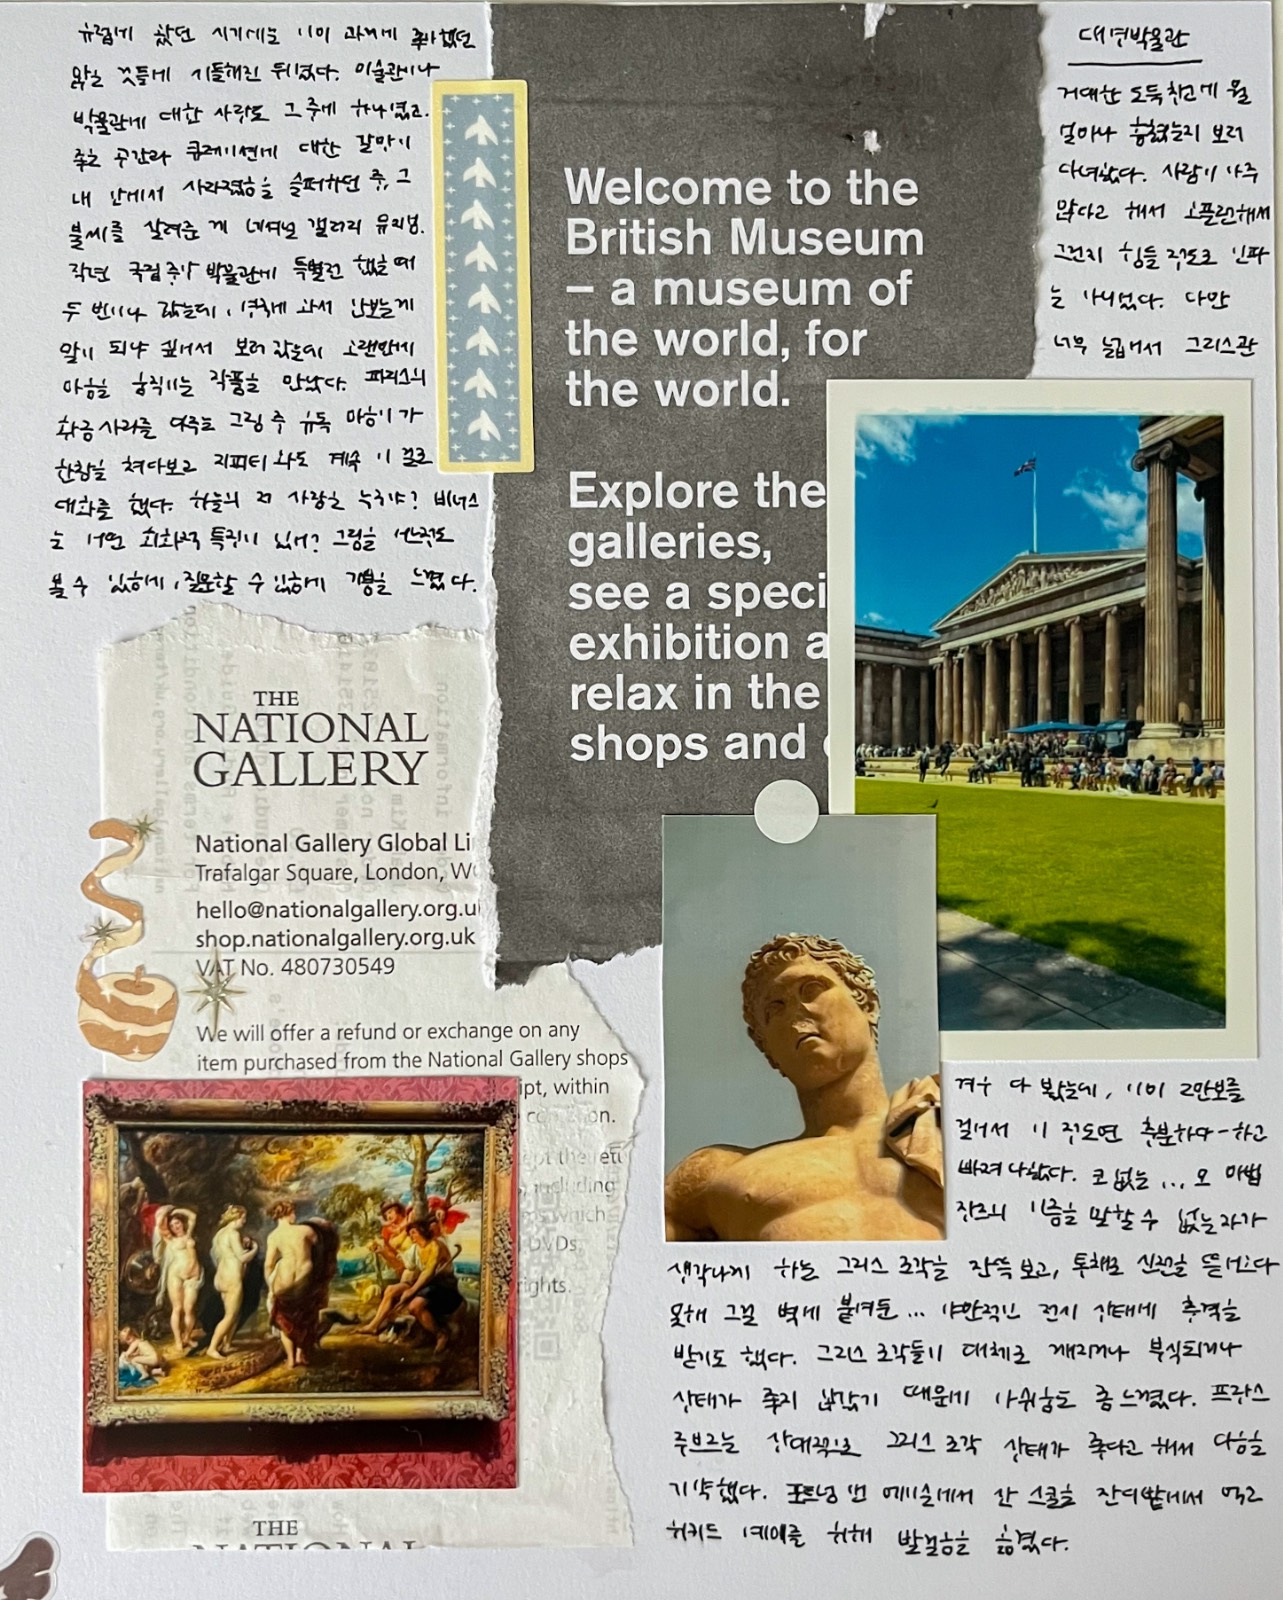 유럽에 갔던 시기에는 이미 과거에 좋아했던
많은 것들에 시들해진 뒤였다. 미술관이나
박물관에 대한 사랑도 그 중에 하나였고.
좋은 공간과 큐레이션에 대한 갈망이
내 안에서 사라졌음을 슬퍼하던 중, 그
불씨를 살려준 게 내셔널 갤러리
작년 국립중앙박물관에 특별전 했을 때
두 번이나 갔는데, 영국에 와서 안보는게
말이 되냐 싶어서 보러 갔는데 오랜만에
마음을 움직이는 작품을 만났다. 파리스의
황금사과를 다루는 그림 중 유독 마음이 가
한참을 쳐다보고 지피티와도 계속 이 걸로
대화를 했다. 하늘의 저 사람은 누구야? 비너스
는 어떤 회화적 특징이 있어? 그림을 이 정도
볼 수 있음에, 질문할 수 있음에 기쁨을 느꼈다.
Welcome to the
British Museum
– a museum of
the world, for
the world.
Explore the
galleries,
see a speci
exhibition a
relax in the
shops and
대영박물관
거대한 도둑창고에 뭘
얼마나 훔쳤는지 보러
다녀왔다. 사람이 아주
많다고 해서 오픈런해서
그런지 힘들 정도로 인파
는 아니었다. 다만
너무 넓어서 그리스관
겨우 다 봤는데, 이미 2만보를
걸어서 이 정도면 충분하다-하고
빠져나왔다. 코 없는... 모 마법
장르의 이름을 말할 수 없는 자가
생각나게 하는 그리스 조각을 잔뜩 보고, 통째로 신전을 뜯어오다
못해 그걸 벽에 붙여둔... 야만적인 전시 상태에 충격을
받기도 했다. 그리스 조각들이 대체로 깨지거나 부식되거나
상태가 좋지 않았기 때문에 아쉬움도 좀 느꼈다. 프랑스
루브르는 상대적으로 그리스 조각 상태가 좋다고 해서 다음을
기약했다. 포트넘 앤 메이슨에서 산 스콘을 잔디밭에서 먹고
위키드 예매를 위해 발걸음을 옮겼다.
THE
NATIONAL
GALLERY
National Gallery Global Li
Trafalgar Square, London, WC
hello@nationalgallery.org.u
shop.nationalgallery.org.uk
VAT No. 480730549
We will offer a refund or exchange on any
item purchased from the National Gallery shops
ipt, within
including
which
DVDs
rights.
THE
NATIONAL